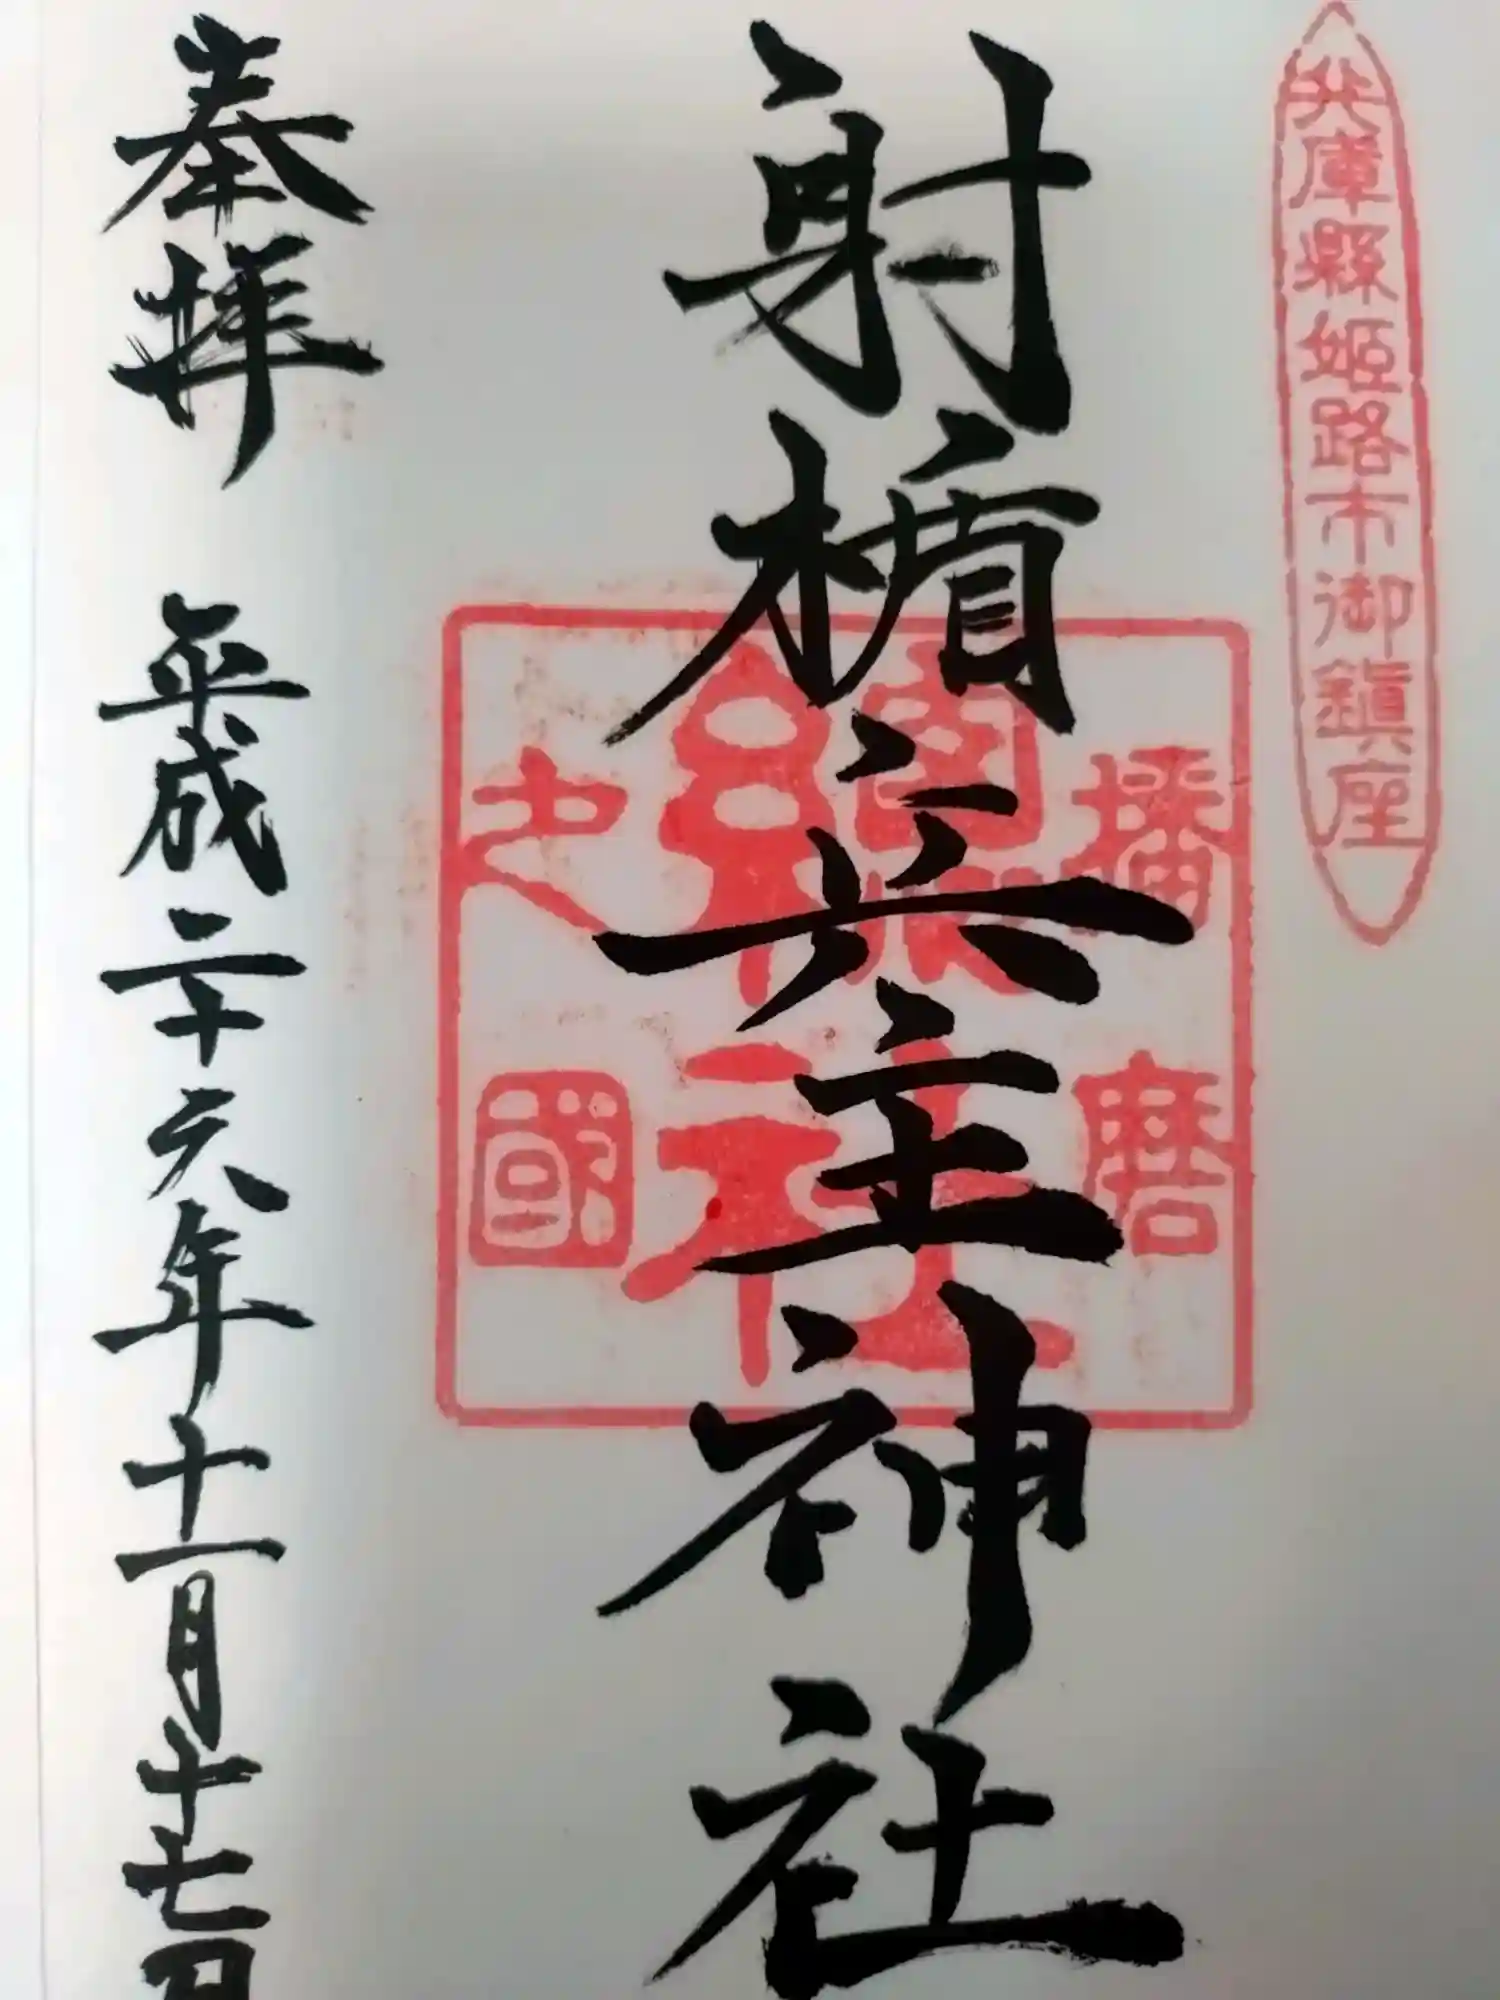 兵庫縣姫路市御鎮座
射楯兵主神社
播磨
總社
之國
奉拝 平成二十六年十一月十七日